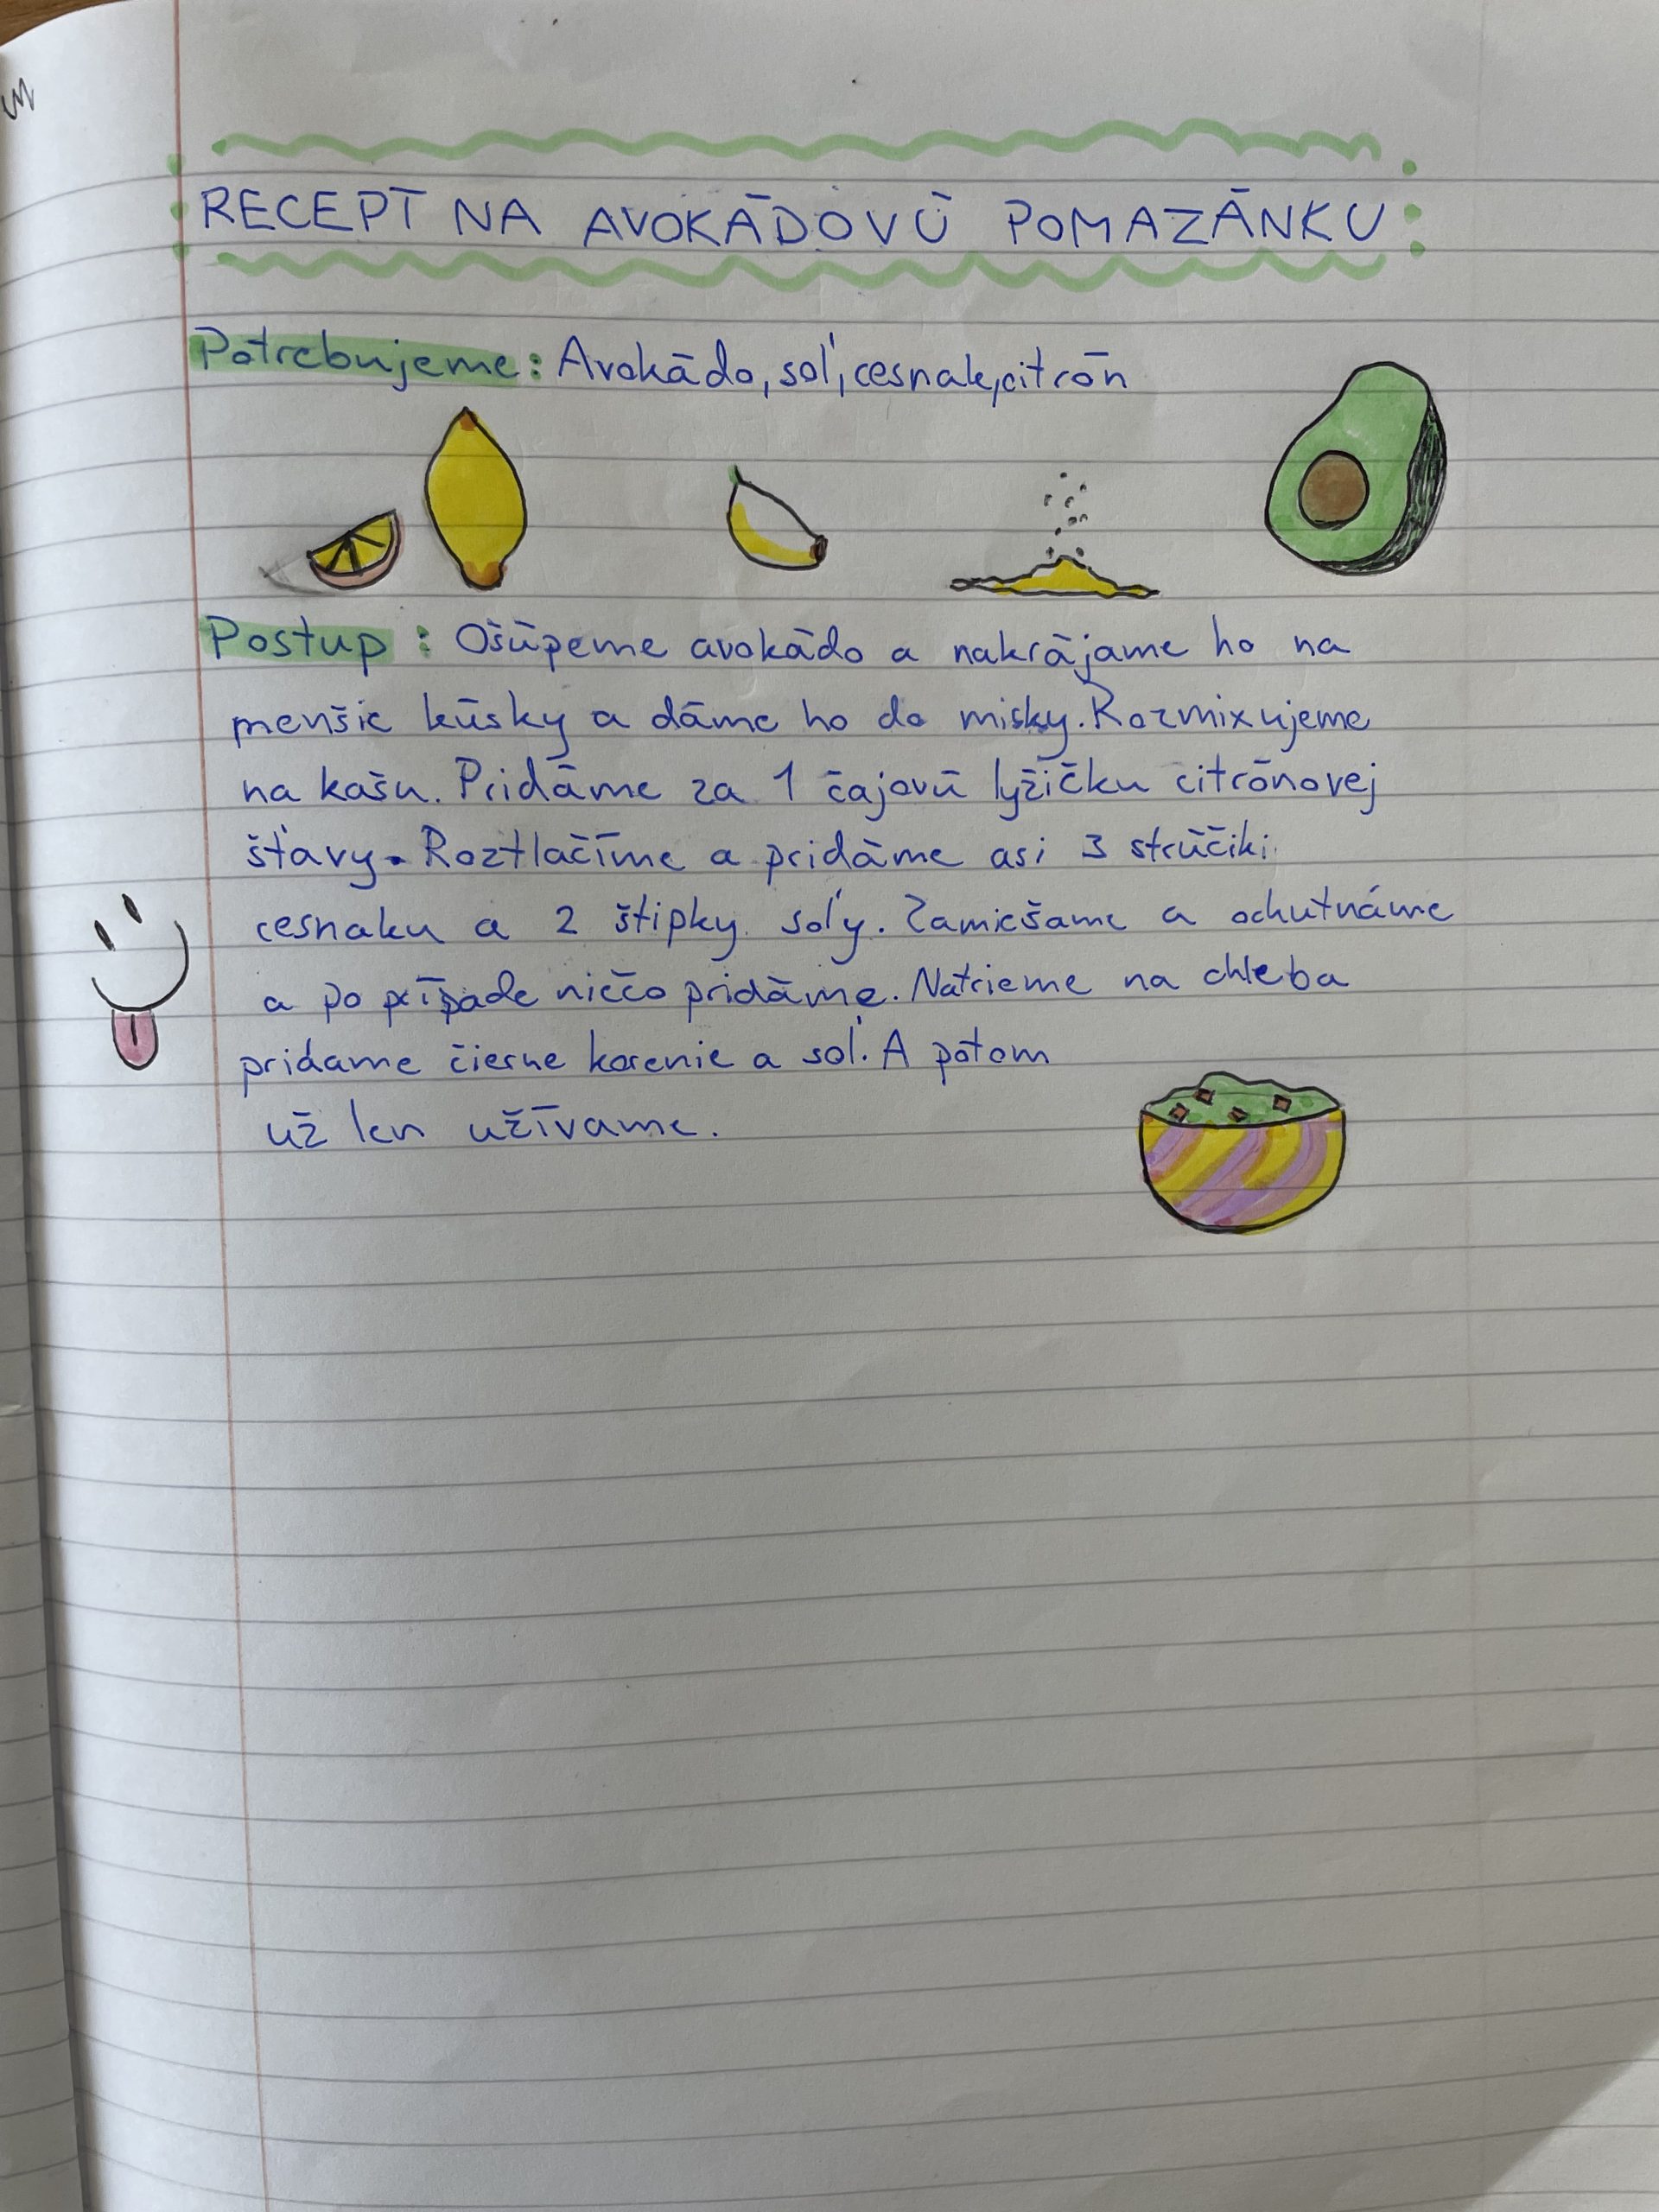 RECEPT NA AVOKÁDOVÚ POMAZÁNKU
Potrebujeme: Avokádo, soľ, cesnak, citrón
Postup: Ošúpeme avokádo a nakrájame ho na
menšie kúsky a dáme ho do misky. Rozmixujeme
na kašu. Pridáme za 1 čajovú lyžičku citrónovej
šťavy. Roztlačíme a pridáme asi 3 strúčiki
cesnaku a 2 štipky soľy. Zamiešame a ochutnáme
a po prípade niečo pridáme. Natrieme na chleba
pridame čierne korenie a soľ. A potom
už len užívame.